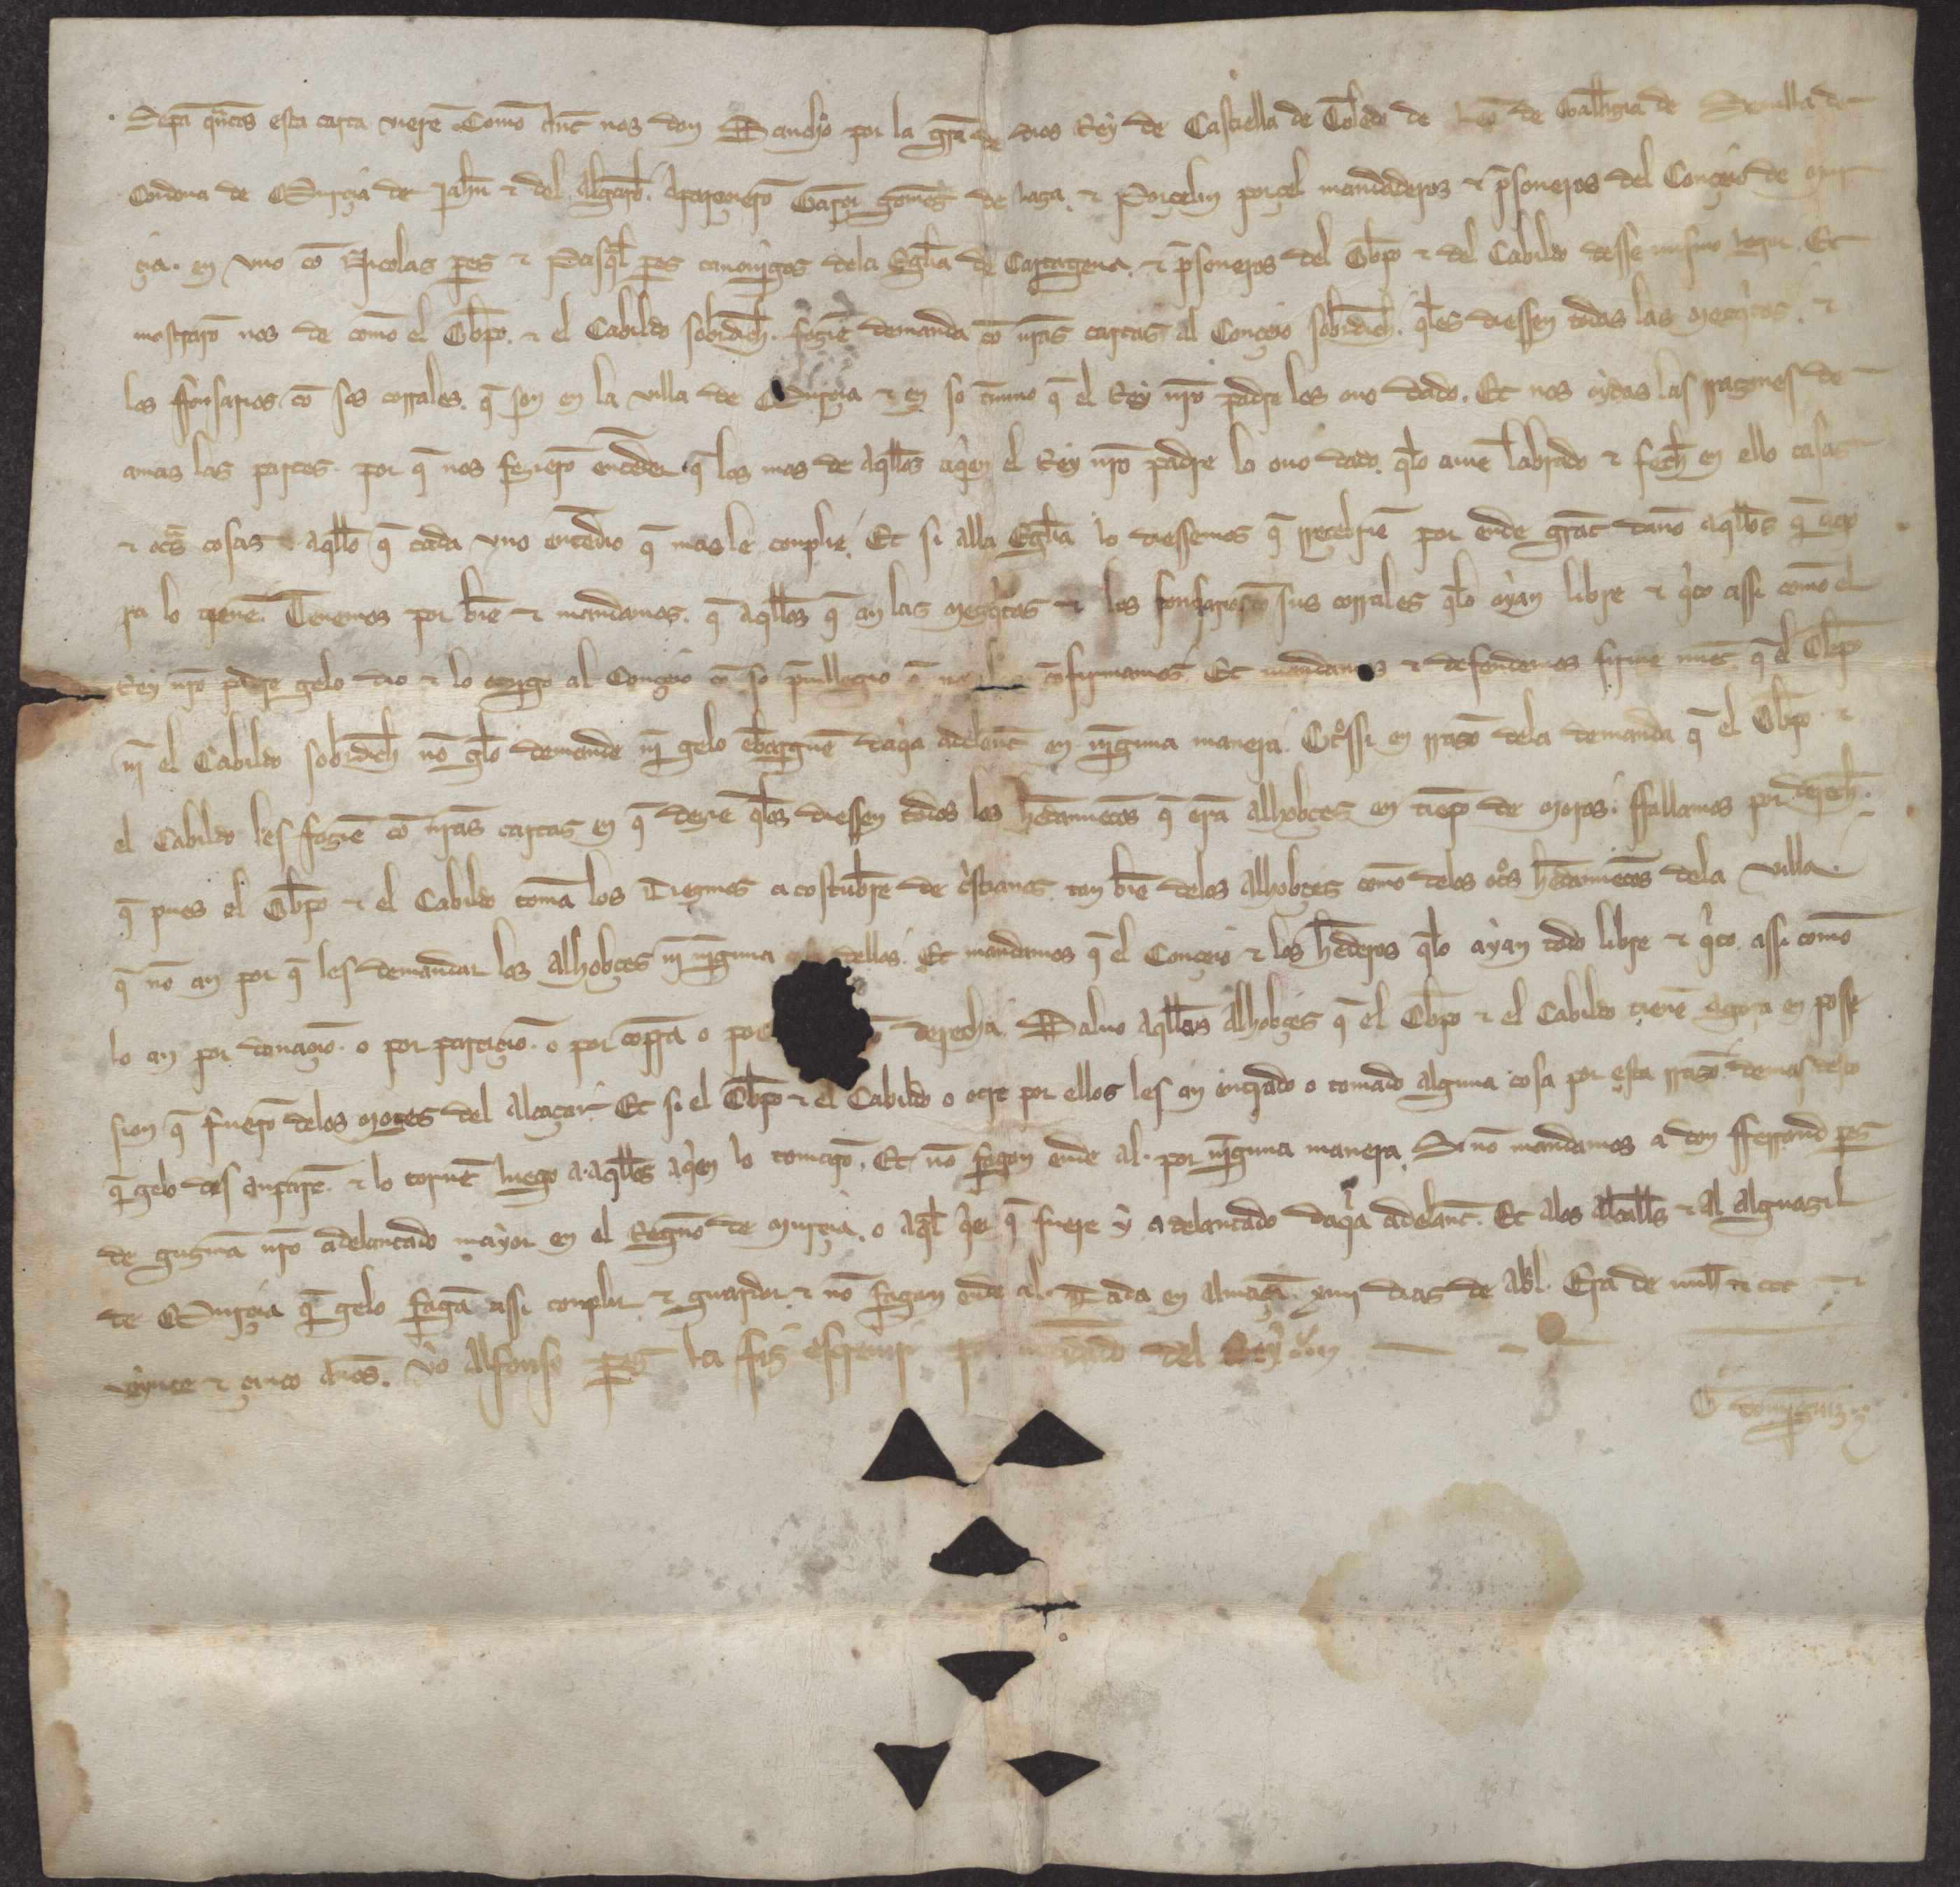 Sepā q̄ntos esta carta uierē Como ant nos don Sancho por la gr̄a de dios Rey de Castiella de Toledo de Leō de Gallizia de Seuilla de
Cordoua de Murçia de Jahn̄ ⁊ del Algarb̄. Apareçierō Garçi gomes de laça. ⁊ Porçelin porçel mandaderos ⁊ p̄soneros del Conçeio de Mur
çia. en uno cō Nicolas peres ⁊ Pasq̄l peres canonigos dela Egl̄ia de Cartagena. ⁊ p̄soneros del Ob̄po ⁊ del Cabildo desse mismo logar. Et
mostrarō nos de como el Ob̄po. ⁊ el Cabildo sobredich̄. fazīe demanda cō nr̄as cartas al Conçeio sobredich̄. q̄les diessen todas las mezq̄tas. ⁊
los fforsarios cō sos corrales. q̄ son en la uilla de Murçia ⁊ en so t̄mino q̄ el Rey nr̄o padre les ouo dado. Et nos oydas las rrazones de
amas las partes. por q̄ nos fizierō entēder q̄ los mas de aq̄llos aq̄en el Rey nr̄o padre lo ouo dado. q̄lo auiē labrado ⁊ fech̄ en ello casas
⁊ otrās cosas aq̄llo q̄ cada uno entēdio q̄ mas le conplie. Et si alla Egl̄ia lo diessemos q̄ rreçebriē por ende grāt danno aq̄llos q̄ ago
ra lo tienē. Tenemos por biē ⁊ mandamos. q̄ aq̄llos q̄ an las mezq̄tas ⁊ los fonsarios cō sus corrales q̄lo ayan libre ⁊ q̄to assi como el
Rey nr̄o padre gelo dio ⁊ lo otorgo al Conçeio cō so p̄uillegio q̄ nos les cōfirmamos. Et mandamos ⁊ defendemos firme mēt. q̄ el Ob̄po
nī el Cabildo sobredich̄ nō q̄lo demande nī gelo ēbarguē daq̄a adelant en nīguna manera. Otrossi en rrazō dela demanda q̄ el Ob̄po. ⁊
el Cabildo les fazīe cō nr̄as cartas en q̄ dezīe q̄les diessen todos los h̄damiētos q̄ erā alhobzes en tiēpo de moros. ffallamos por derech̄.
q̄ pues el Ob̄po ⁊ el Cabildo tomā los Diezmos a costūbre de c̄stianos. tan biē delos Alhobzes como delos ot̄os h̄damiētos dela Villa.
q̄ nō an por q̄ les demandar los Alhobzes nī nīguna dellos. Et mandamos q̄ el Conçeio ⁊ los h̄deros q̄lo ayan todo libre ⁊ q̄to. assi como
lo an por donaçiō. o por partiçiō. o por conpra o por derecha. Saluo aq̄llos Alhobzes q̄ el Ob̄po ⁊ el Cabildo tienē agora en posse
sion q̄ fuerō delos moros del Alcaçar. Et si el Ob̄po ⁊ el Cabildo o otre por ellos les an entrado o tomado alguna cosa por esta rrazō. demas desto
q̄ gelo des anparē. ⁊ lo tornē luego a aq̄llos aq̄en lo tomarō. Et nō fagan ende al. por nīguna manera. Si nō mandamos a don fferrand pes
de guzmā nr̄o adelantado mayor en el Regno de Murçia. o aq̄l q̄er q̄ fuere y adelantado daq̄a adelant. Et alos alcall̄s ⁊ al alguazil
de Murçia q̄ gelo fagā assi conplir ⁊ guardar ⁊ nō fagan ende al. Dada en almaçā. xiiij dias de abl̄. Era de mill ⁊ ccc ⁊
ueynte ⁊ çinco annos. Yo Alfonso peres la fiz escreuir por mādado del Rey